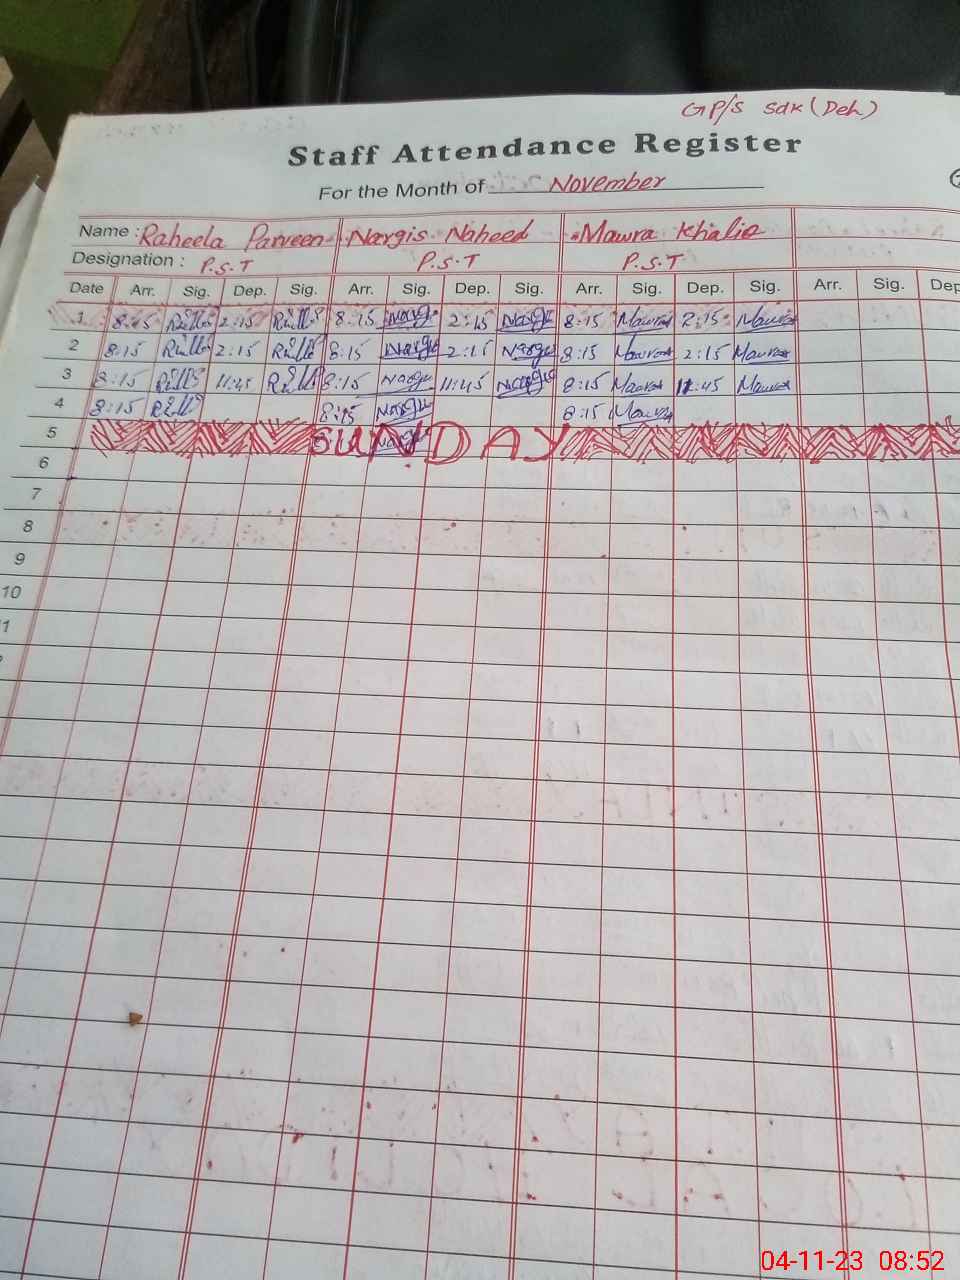 GP/S Sdk (Deh)
Staff Attendance Register
For the Month of November
Name : Raheela Parveen Nargis Naheed Mawra Khaliq
Designation : P.S.T P.S.T P.S.T
Date Arr. Sig. Dep. Sig. Arr. Sig. Dep. Sig. Arr. Sig. Dep. Sig. Arr. Sig. Dep
1 8:15 2:15 8:15 Nargis 2:15 Nargis 8:15 Mawra 2:15 Mawra
2 8:15 2:15 8:15 Nargis 2:15 Nargis 8:15 Mawra 2:15 Mawra
3 8:15 11:45 8:15 Nargis 11:45 Nargis 8:15 Mawra 11:45 Mawra
4 8:15 8:15 Nargis 8:15 Mawra
5 SUNDAY
6
7
8
9
10
04-11-23 08:52